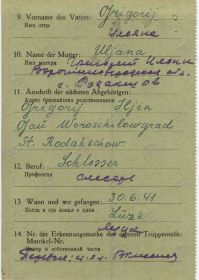 9. Vorname des Vaters: Grigorij
Имя отца
10. Name der Mutter: Uljana
Имя матери
11. Anschrift der nächsten Angehörigen:
Адрес ближайших родственников
Grigorij Iljin
Gau Woroschilowgrad
St. Rodakschow
12. Beruf: Schlosser
Профессия слесарь
13. Wann und wo gefangen: 30.6.41
Когда и где попал в плен Luzk
14. Nr. der Erkennungsmarke des eigenen Truppenteils:
Matrikel-Nr.
Номер в собственной части